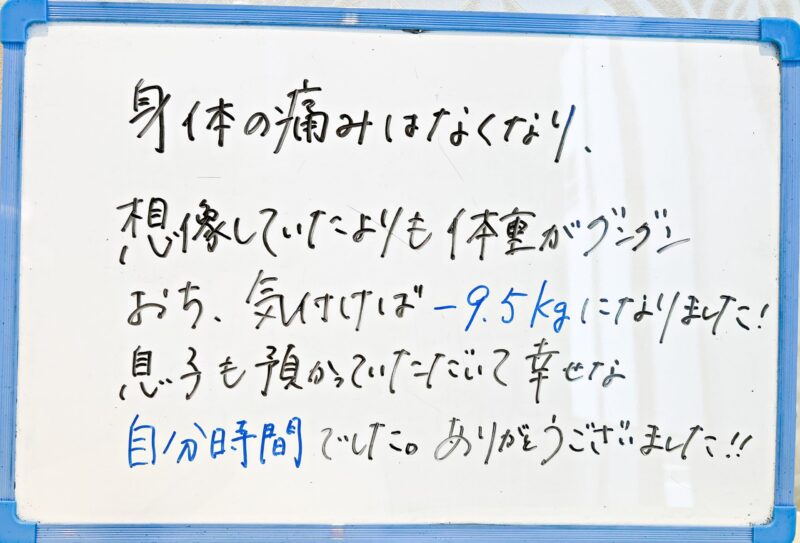 身体の痛みはなくなり、
想像していたよりも体重がグングン
おち、気付けば-9.5kgになりました!
息子も預かっていただいて幸せな
自分時間でした。ありがとうございました!!